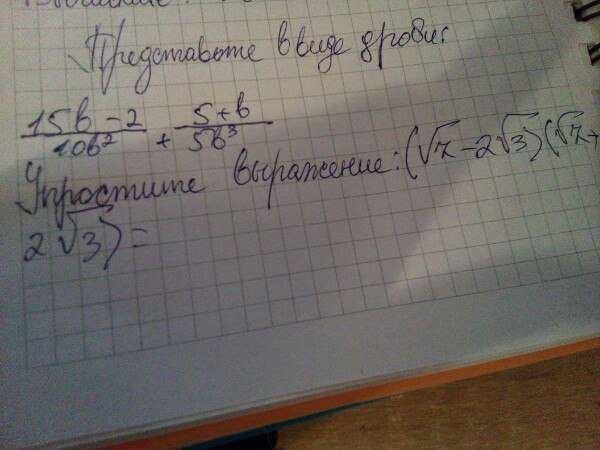 Представьте в виде дроби:
15b - 2 / 10b² + 5 + b / 5b³
Упростите выражение: (√7 - 2√3)(√7 +
2√3) =